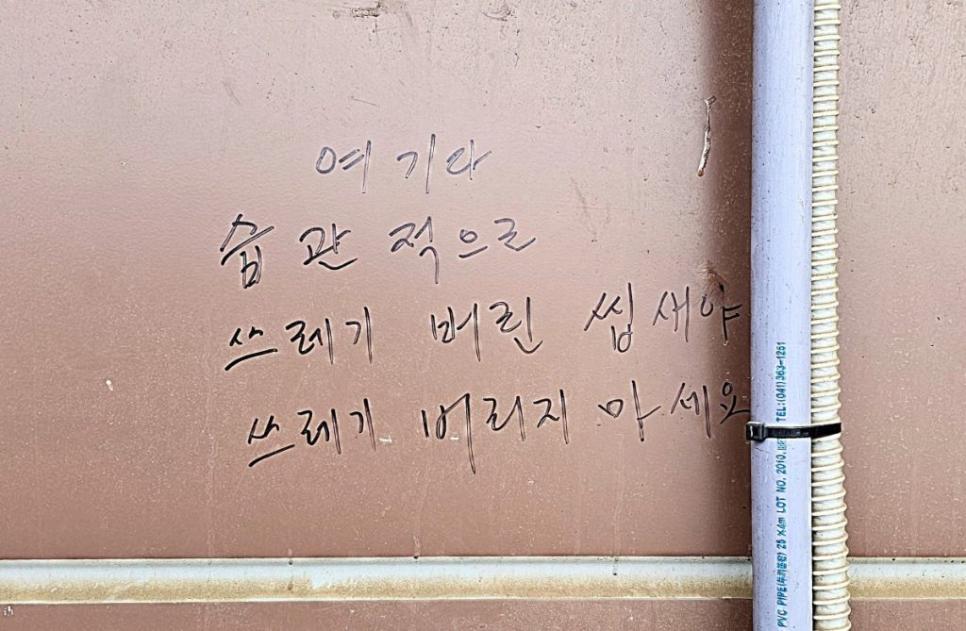 여기다
습관적으로
쓰레기 버린 씹새야
쓰레기 버리지 마세요
PVC PIPE(두리화학) 25 X4m LOT NO. 2010. TEL:(041)363-1251